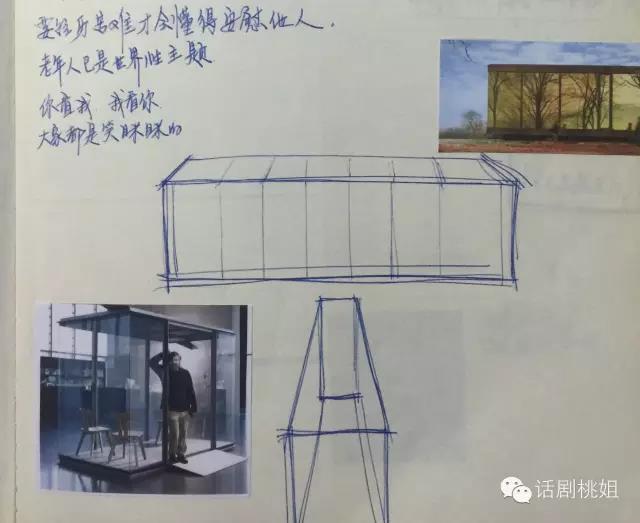 要经历苦难才会懂得安慰他人.
老年人已是世界性主题
你看我 我看你
大家都是笑眯眯的
话剧桃姐